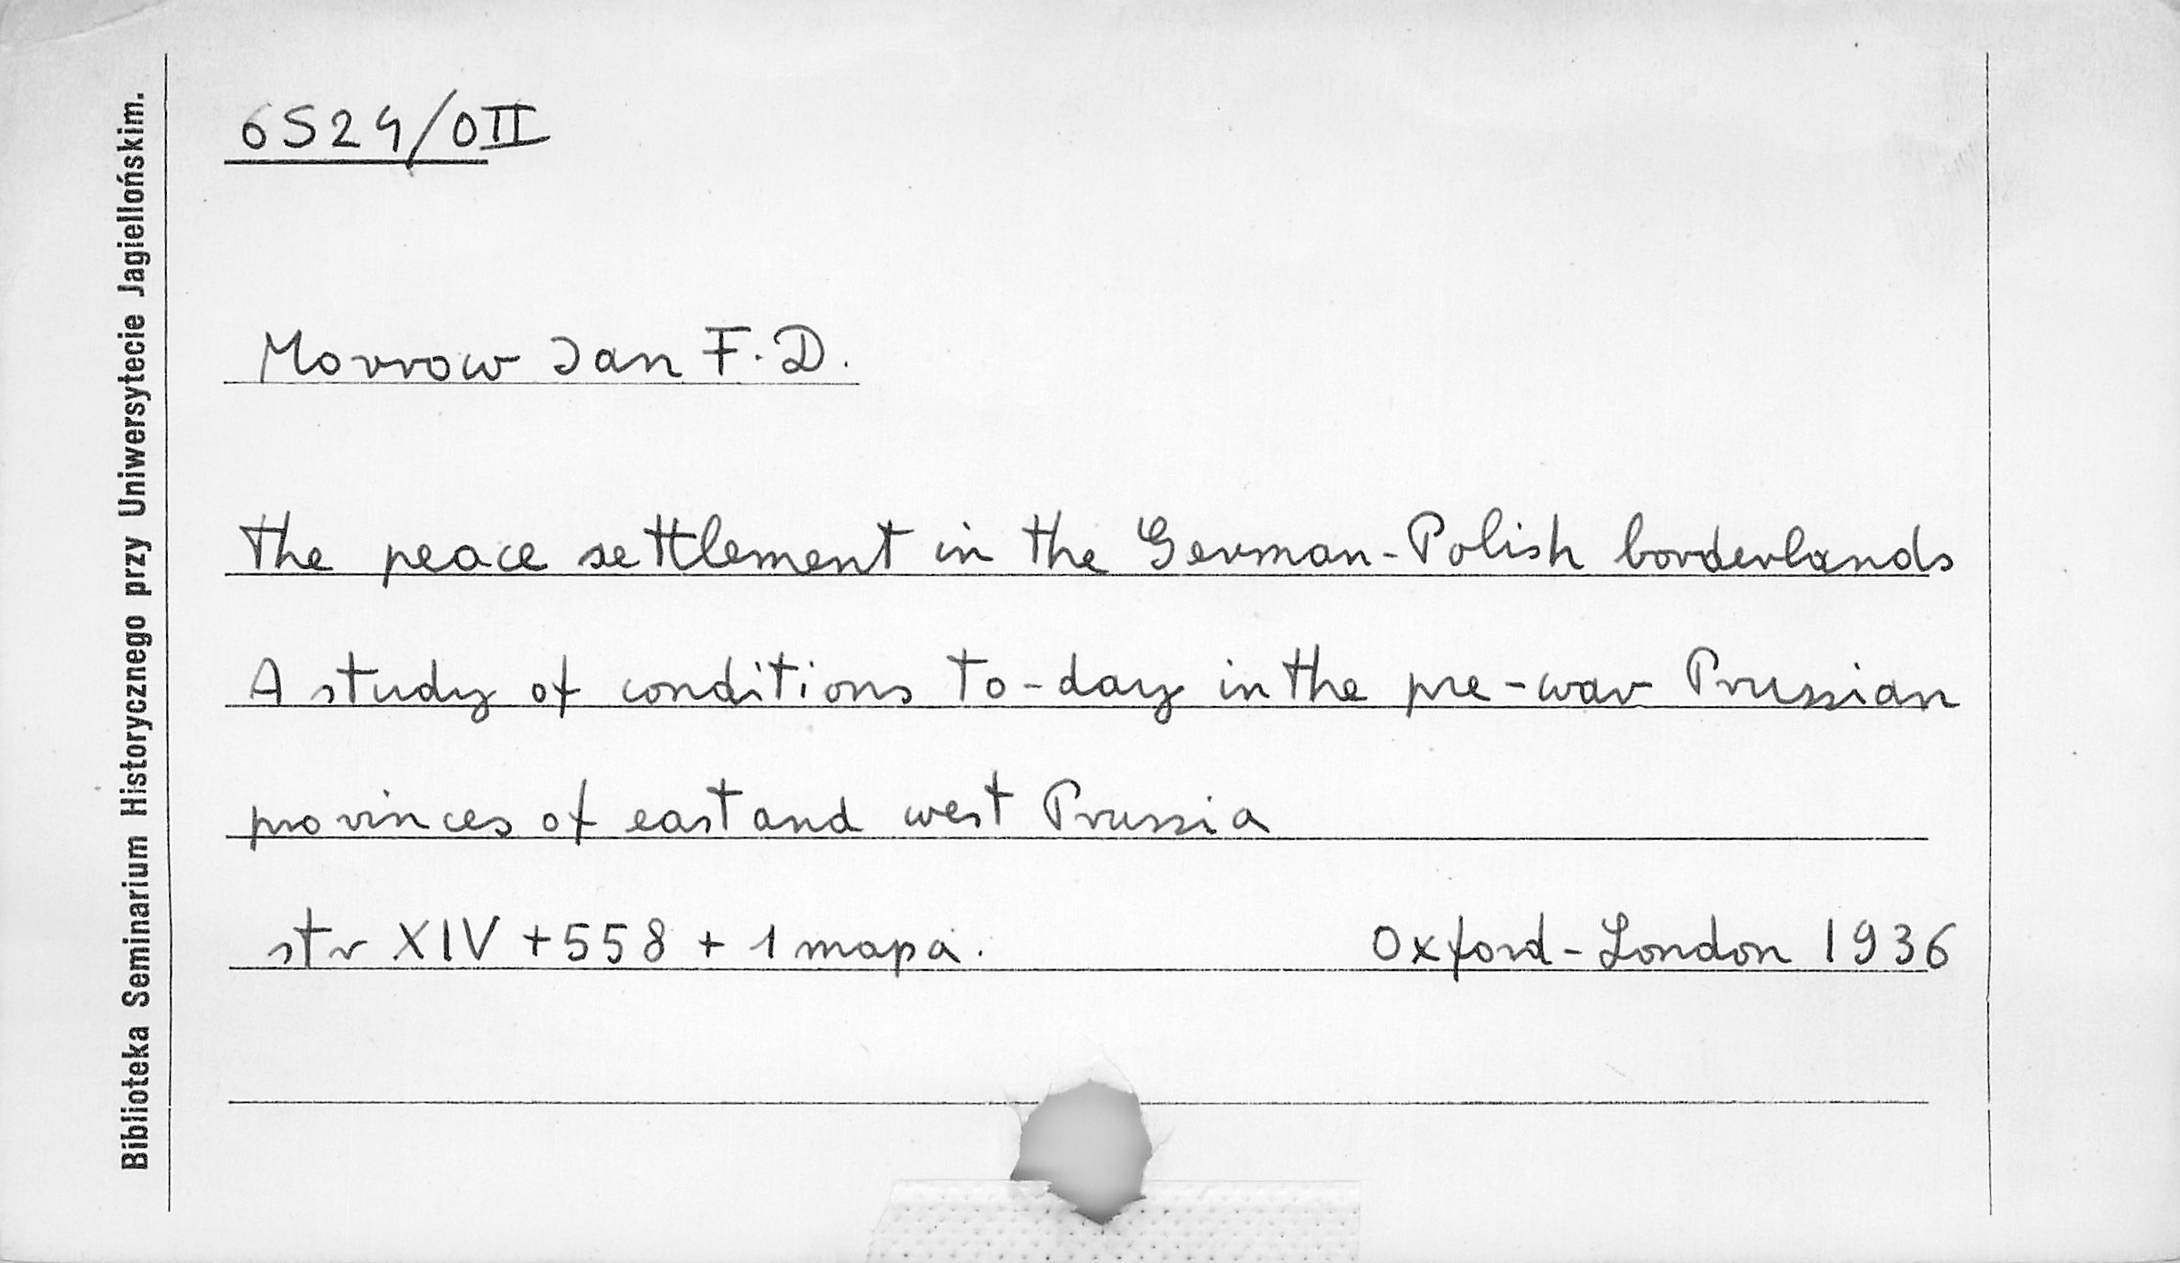 6524/OII
Morrow Ian F. D.
The peace settlement in the German-Polish borderlands
A study of conditions to-day in the pre-war Prussian
provinces of east and west Prussia
str XIV + 558 + 1 mapa.
Oxford-London 1936
Biblioteka Seminarium Historycznego przy Uniwersytecie Jagiellońskim.